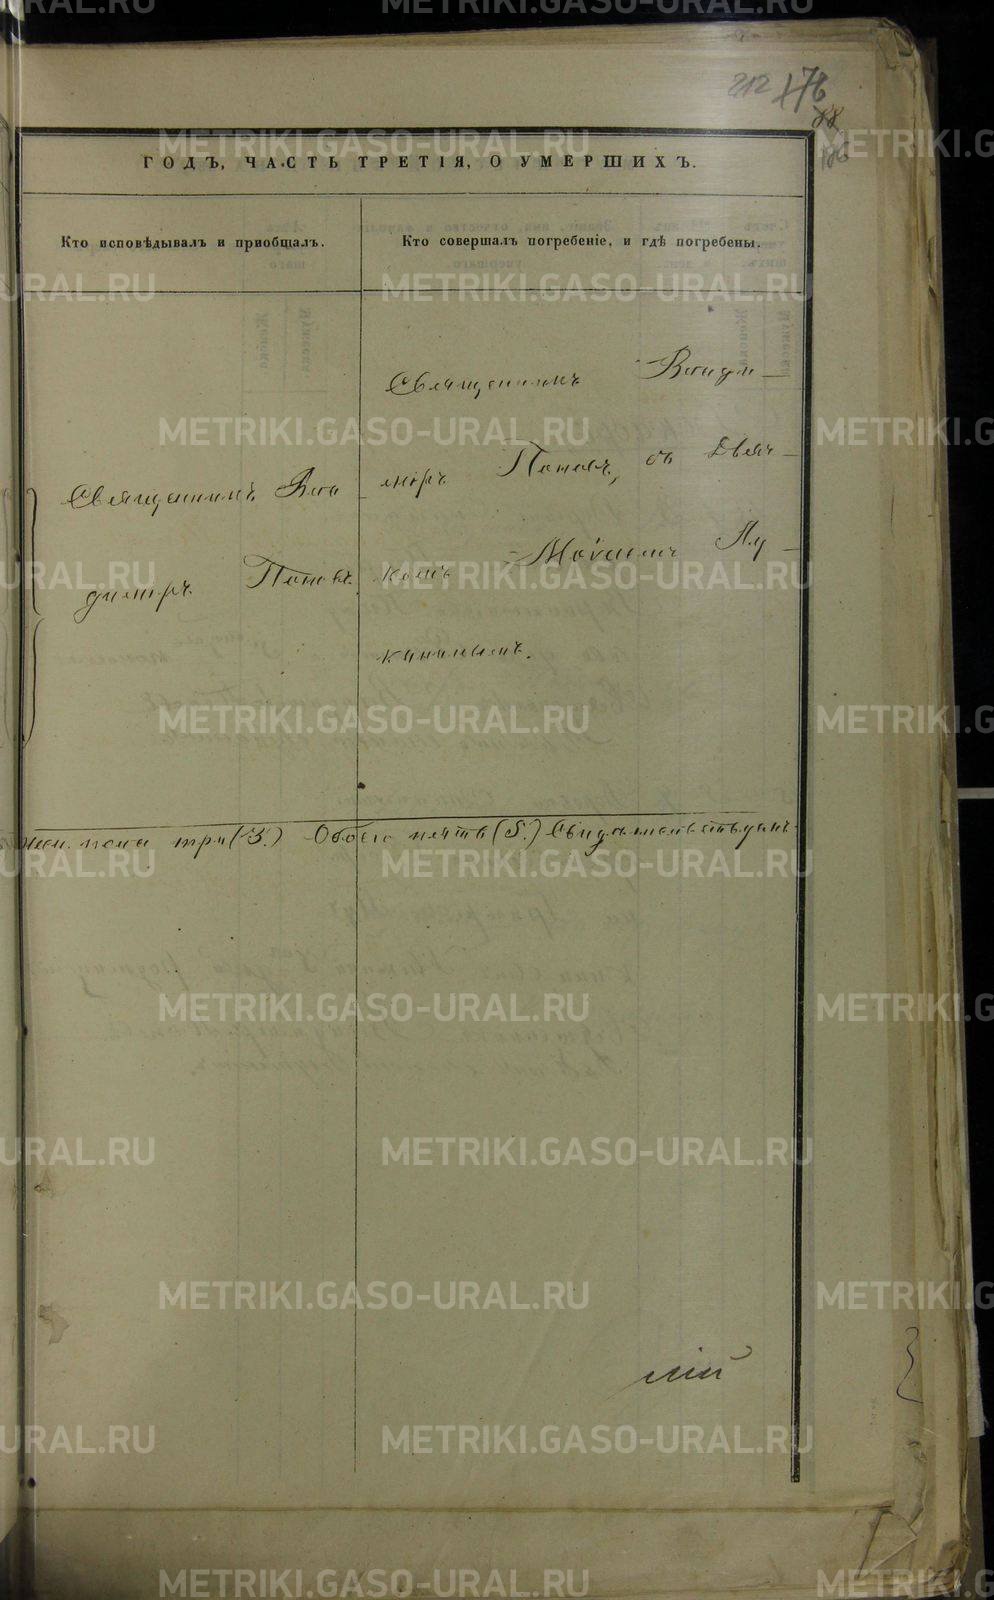 212 176
88
186
ГОДЪ, ЧАСТЬ ТРЕТІЯ, О УМЕРШИХЪ.
Кто исповѣдывалъ и приобщалъ.
Кто совершалъ погребеніе, и гдѣ погребены.
Священникъ Вла
димiръ Поповъ.
Священникъ Влади-
мiръ Поповъ, съ Дьяч-
комъ Моисеемъ Лу-
канинымъ.
жен. пола три (3.) Обоего пять (5.) Свидѣтельствуемъ
лiй
METRIKI.GASO-URAL.RU